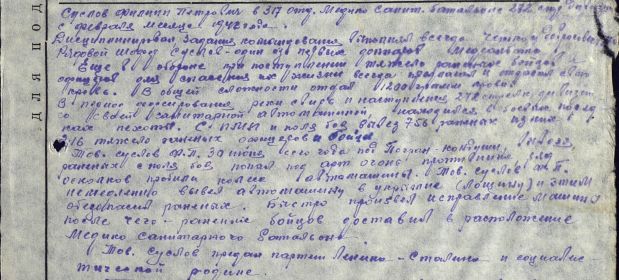 ДЛЯ ПОД
Суслов Филипп Петрович в 317 отд. Медико Санит. Батальоне 272 стр. дивизии
с февраля месяца 1942 года.
Дисциплинирован задания командования выполнял всегда четко
Рядовой Шофер Суслов - один из первых доноров Медсанбата.
Еще в обороне при поступлении тяжело раненых бойцов
офицеров для спасения их жизни всегда предлагал и отдавал свою
кровь. В общей сложности отдал 1200 грамм крови.
В период форсирования реки Свирь и наступления 272 стрелк. дивизии
со своей санитарной автомашиной находился в боевых поряд
ках пехоты. С ПМП и поля боя вывез 756 раненых из них
216 тяжело раненых офицеров и бойца
Тов. Суслов Ф.П. 30 июня сего года под Погран-Кондуши, вывозя
раненых с поля боя, попал под арт огонь противника
осколков пробили колесо автомашины. Тов. Суслов Ф.П.
немедленно вывел автомашину в укрытие (Лощину) и этим
обезопасил раненых. Быстро произвел исправление машины
после чего - ранение бойцов доставил в расположение
Медико Санитарного Батальон
Тов. Суслов предан партии Ленина - Сталина и социалис-
тической родине.